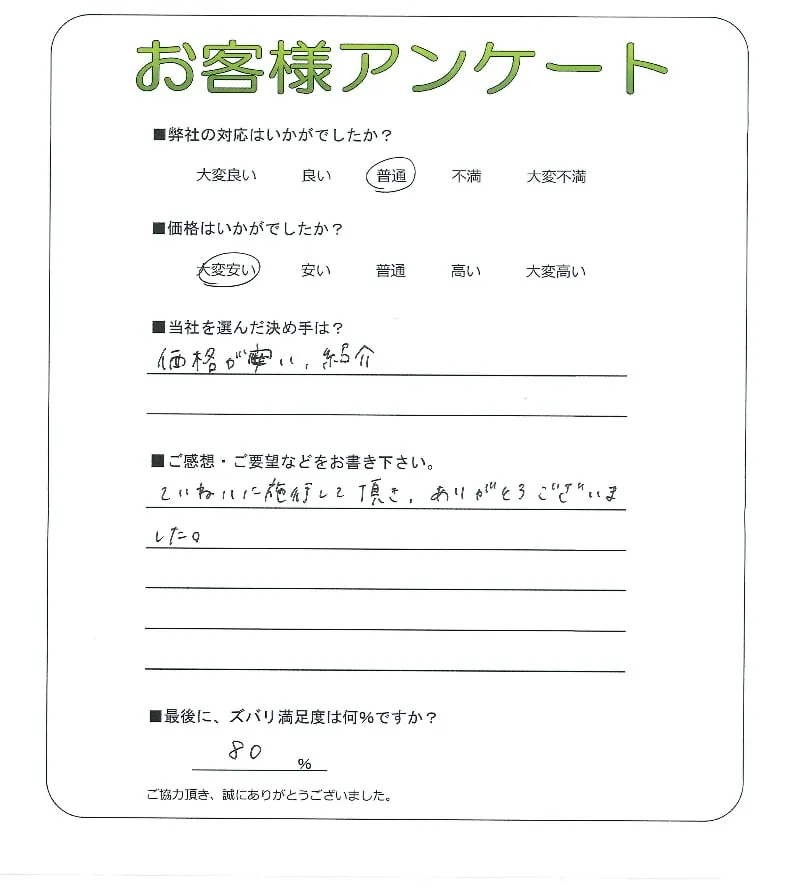 お客様アンケート
■弊社の対応はいかがでしたか？
大変良い 良い 普通 不満 大変不満
■価格はいかがでしたか？
大変安い 安い 普通 高い 大変高い
■当社を選んだ決め手は？
価格が安い、紹介
■ご感想・ご要望などをお書き下さい。
ていねいに施行して頂き、ありがとうございま
した。
■最後に、ズバリ満足度は何%ですか？
80 %
ご協力頂き、誠にありがとうございました。